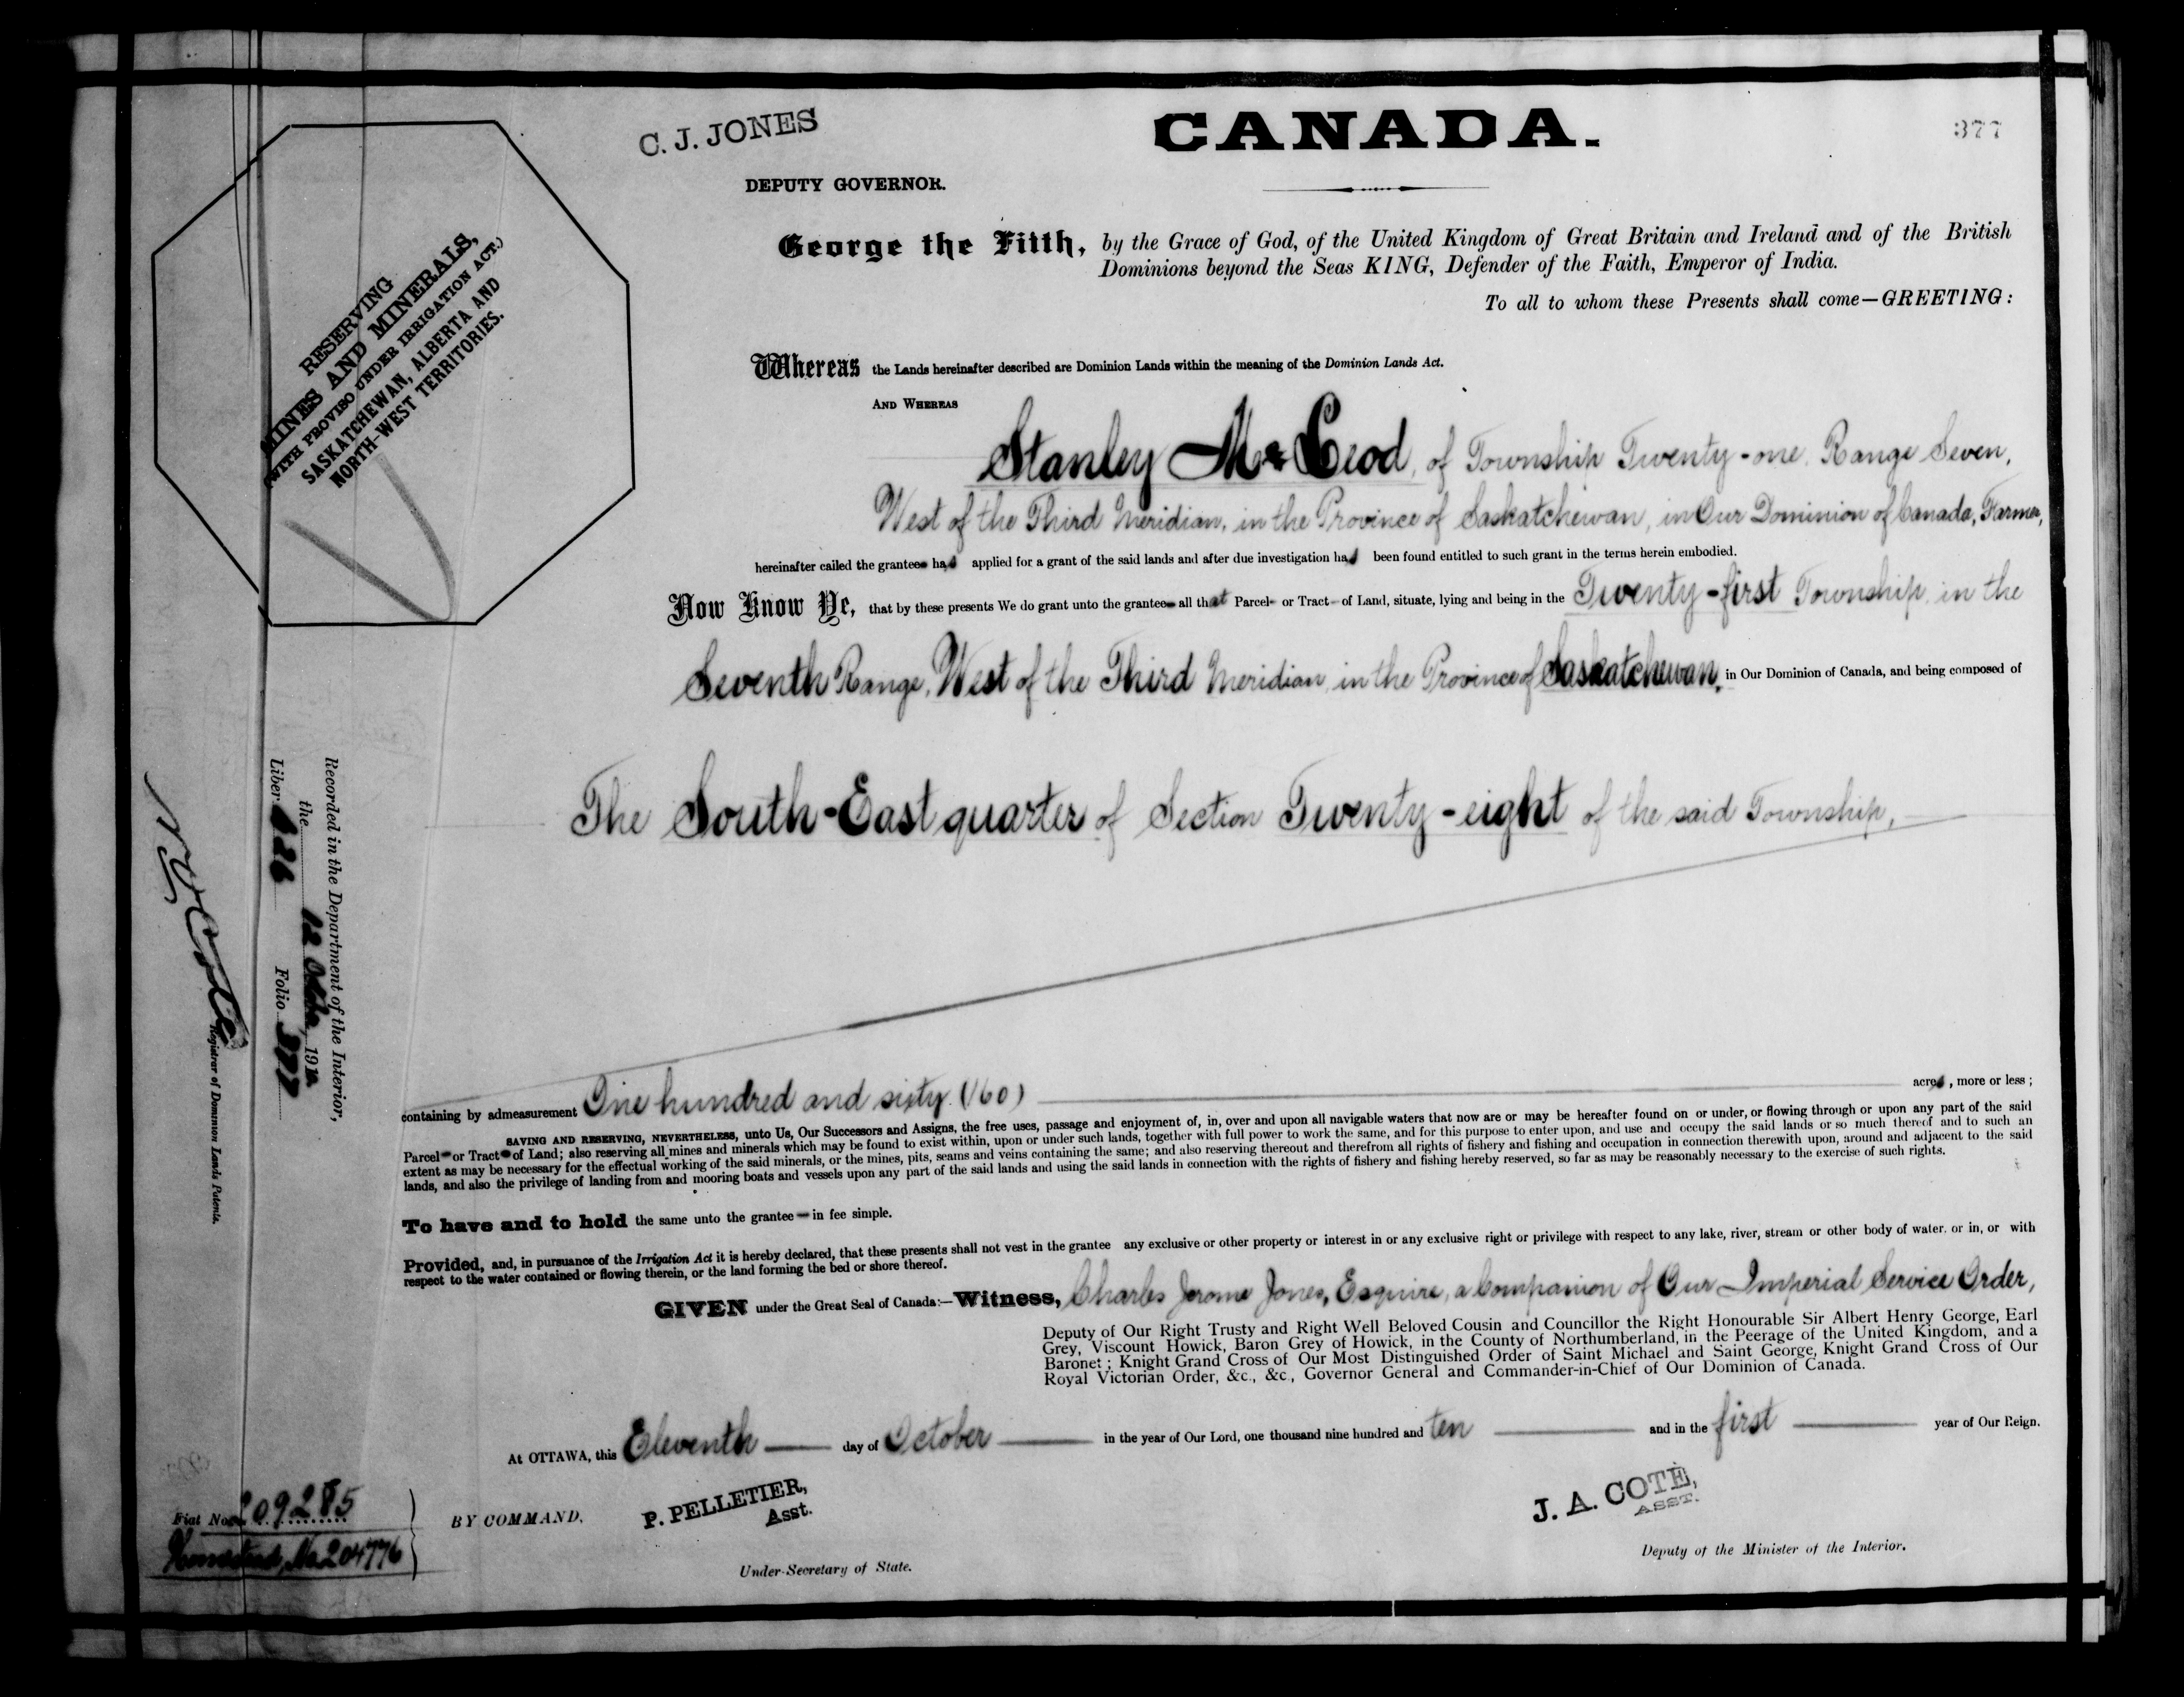 C. J. JONES
CANADA.
377
DEPUTY GOVERNOR.
George the Fifth, by the Grace of God, of the United Kingdom of Great Britain and Ireland and of the British
Dominions beyond the Seas KING, Defender of the Faith, Emperor of India.
To all to whom these Presents shall come—GREETING:
RESERVING
MINES AND MINERALS,
(WITH PROVISO UNDER IRRIGATION ACT.)
SASKATCHEWAN, ALBERTA AND
NORTH-WEST TERRITORIES.
Whereas the Lands hereinafter described are Dominion Lands within the meaning of the Dominion Lands Act.
AND WHEREAS
Stanley McLeod, of Township Twenty-one, Range Seven,
West of the Third Meridian, in the Province of Saskatchewan, in Our Dominion of Canada, Farmer,
hereinafter called the grantee had applied for a grant of the said lands and after due investigation had been found entitled to such grant in the terms herein embodied.
Now Know Ye, that by these presents We do grant unto the grantee all that Parcel or Tract of Land, situate, lying and being in the Twenty-first Township, in the
Seventh Range, West of the Third Meridian, in the Province of Saskatchewan, in Our Dominion of Canada, and being composed of
The South-East quarter of Section Twenty-eight of the said Township,
containing by admeasurement One hundred and sixty (160) acres, more or less;
SAVING AND RESERVING, NEVERTHELESS, unto Us, Our Successors and Assigns, the free uses, passage and enjoyment of, in, over and upon all navigable waters that now are or may be hereafter found on or under, or flowing through or upon any part of the said
Parcel or Tract of Land; also reserving all mines and minerals which may be found to exist within, upon or under such lands, together with full power to work the same, and for this purpose to enter upon, and use and occupy the said lands or so much thereof and to such an
extent as may be necessary for the effectual working of the said minerals, or the mines, pits, seams and veins containing the same; and also reserving thereout and therefrom all rights of fishery and fishing and occupation in connection therewith upon, around and adjacent to the said
lands, and also the privilege of landing from and mooring boats and vessels upon any part of the said lands and using the said lands in connection with the rights of fishery and fishing hereby reserved, so far as may be reasonably necessary to the exercise of such rights.
To have and to hold the same unto the grantee in fee simple.
Provided, and, in pursuance of the Irrigation Act it is hereby declared, that these presents shall not vest in the grantee any exclusive or other property or interest in or any exclusive right or privilege with respect to any lake, river, stream or other body of water, or in, or with
respect to the water contained or flowing therein, or the land forming the bed or shore thereof.
GIVEN under the Great Seal of Canada:—Witness, Charles Jerome Jones, Esquire, a Companion of Our Imperial Service Order,
Deputy of Our Right Trusty and Right Well Beloved Cousin and Councillor the Right Honourable Sir Albert Henry George, Earl
Grey, Viscount Howick, Baron Grey of Howick, in the County of Northumberland, in the Peerage of the United Kingdom, and a
Baronet; Knight Grand Cross of Our Most Distinguished Order of Saint Michael and Saint George, Knight Grand Cross of Our
Royal Victorian Order, &c., &c., Governor General and Commander-in-Chief of Our Dominion of Canada.
At OTTAWA, this Eleventh day of October in the year of Our Lord, one thousand nine hundred and ten and in the first year of Our Reign.
BY COMMAND,
P. PELLETIER,
Asst.
Under-Secretary of State.
J. A. COTE,
ASST.
Deputy of the Minister of the Interior.
Recorded in the Department of the Interior,
the 12 October, 1910
Liber 626 Folio 377
Registrar of Dominion Lands Patents.
Fiat No. 209285
Homestead, No 204776